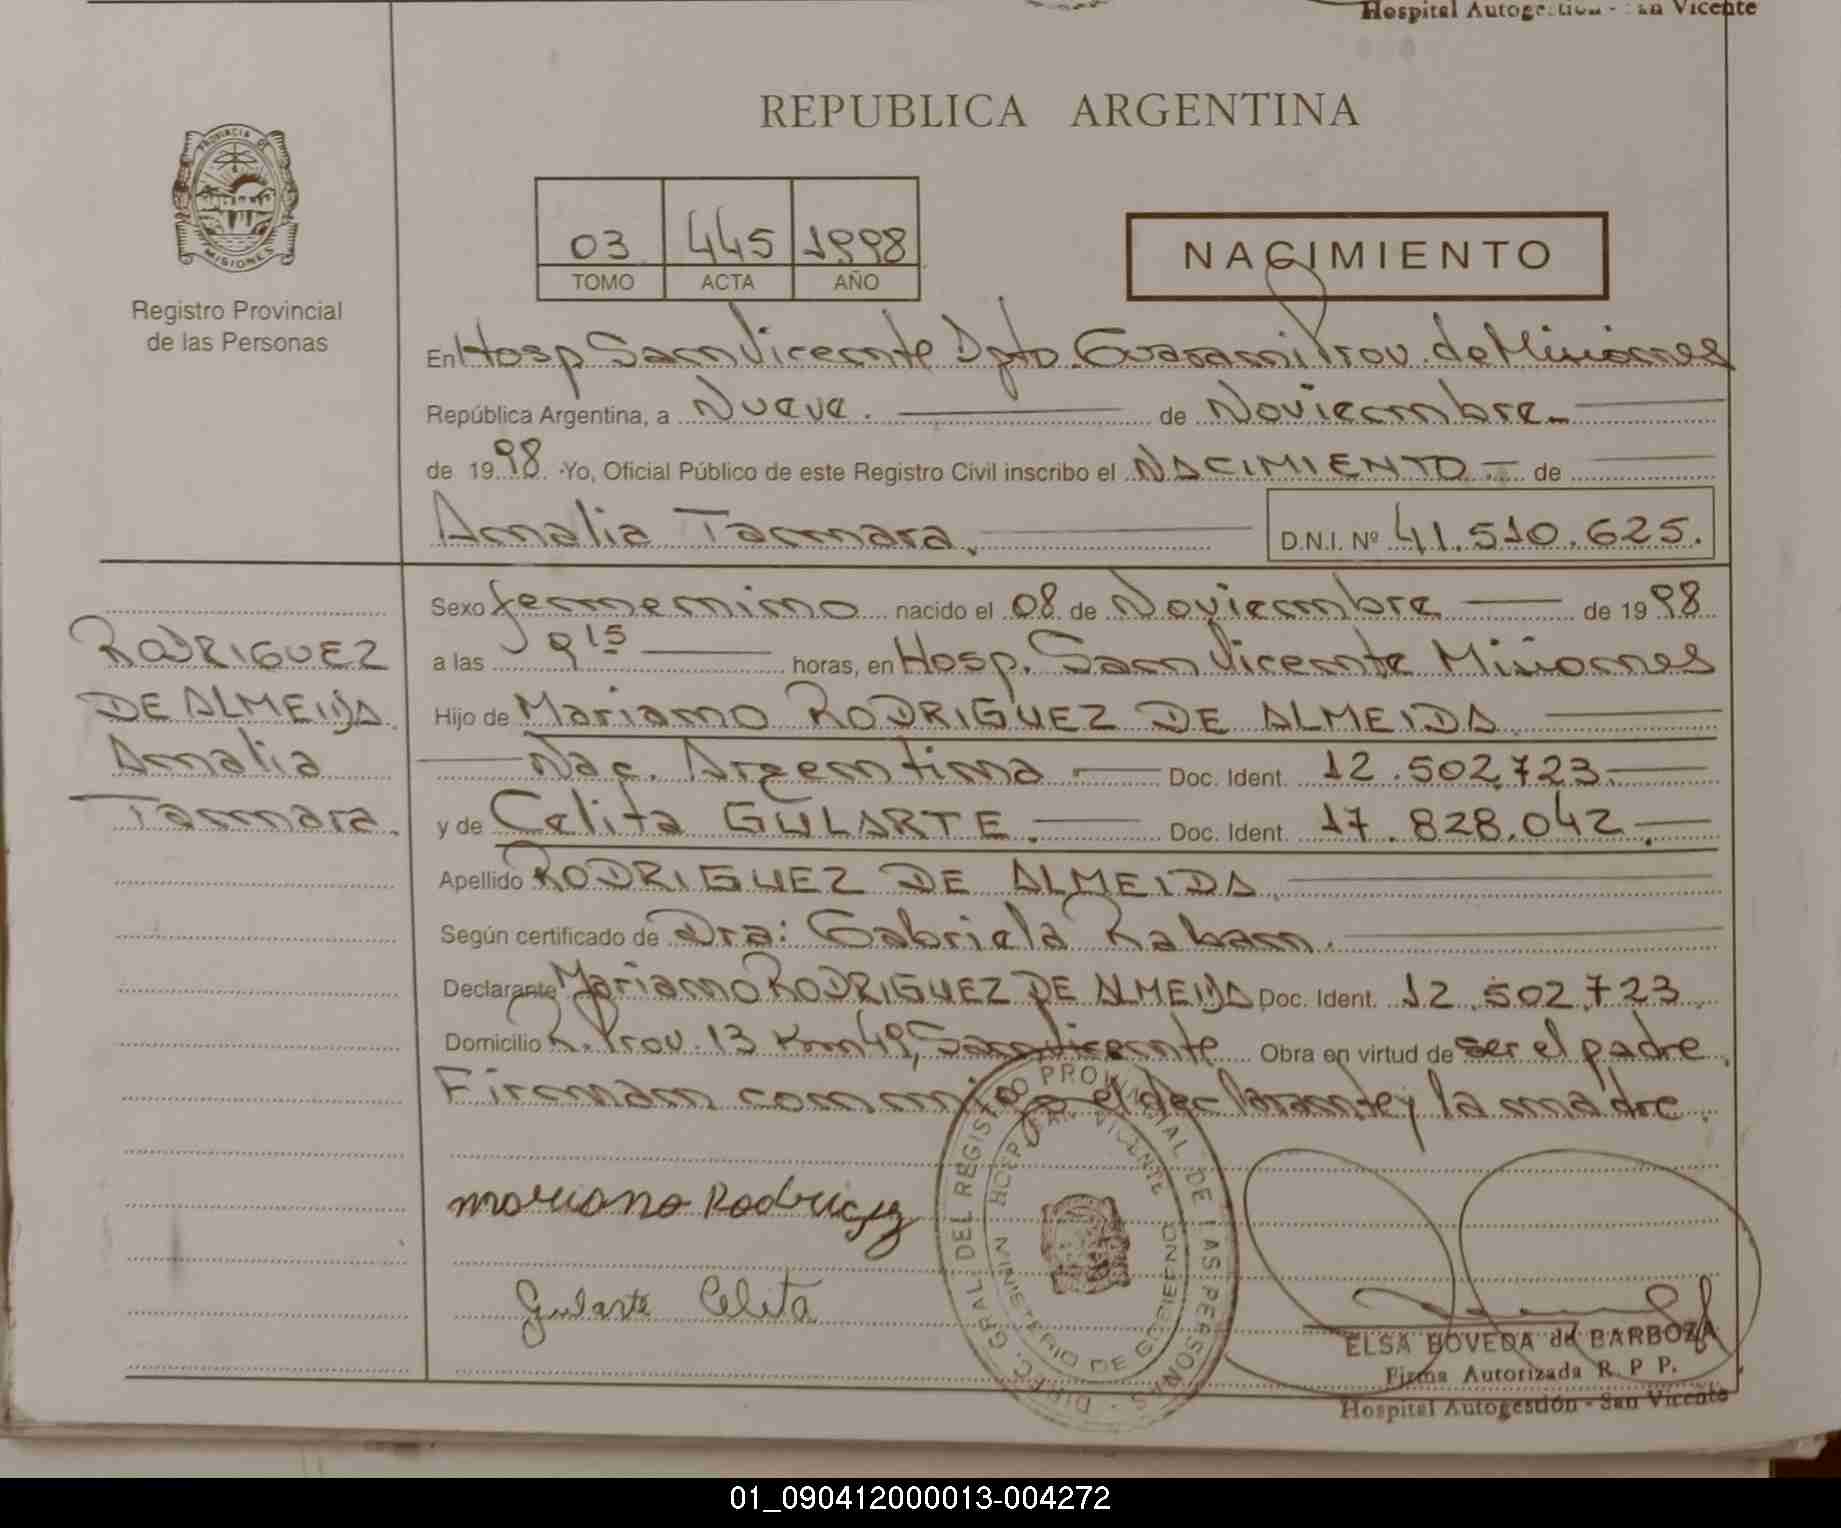 Hospital Autogestión - San Vicente
REPUBLICA ARGENTINA
PROVINCIA DE MISIONES
Registro Provincial
de las Personas
03 445 1998
TOMO ACTA AÑO
NACIMIENTO
En Hosp. San Vicente Dpto. Guarani Prov. de Misiones
República Argentina, a Nueve. de Noviembre
de 1998 - Yo, Oficial Público de este Registro Civil inscribo el NACIMIENTO - de
Amalia Tamara. D.N.I. Nº 41.510.625.
RODRIGUEZ
DE ALMEIDA
Amalia
Tamara.
Sexo femenino nacido el 08 de Noviembre de 1998
a las 9 15 horas, en Hosp. San Vicente Misiones
Hijo de Mariano RODRIGUEZ DE ALMEIDA
Nac. Argentina Doc. Ident. 12.502.723.
y de Celita GULARTE. Doc. Ident. 17.828.042.
Apellido RODRIGUEZ DE ALMEIDA
Según certificado de Dra: Gabriela Raban.
Declarante Mariano RODRIGUEZ DE ALMEIDA Doc. Ident. 12.502.723.
Domicilio R. Prov. 13 Km 49, San Vicente Obra en virtud de ser el padre.
Firman conmigo el declarante y la madre.
mariano Rodriguez
Gularte Celita
DIREC. GRAL. DEL REGISTRO PROVINCIAL DE LAS PERSONAS
SAN VICENTE
MINISTERIO DE GOBIERNO
ELSA BOVEDA de BARBOZA
Firma Autorizada R. P. P.
Hospital Autogestión - San Vicente
01_090412000013-004272